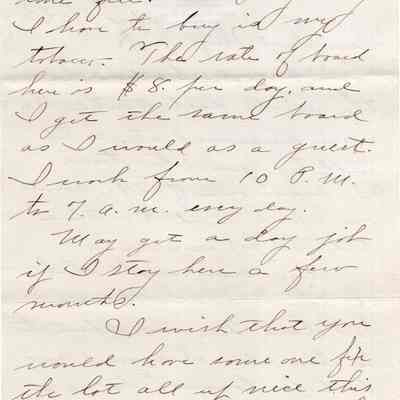 I have to buy is my
tobacco. The rate of board
here is $8. per day, and
I get the same board
as I would as a guest.
I work from 10 P.M.
to 7. a.m. every day.
May get a day job
if I stay here a few
months.
I wish that you
would have some one fix
the lot all up nice this